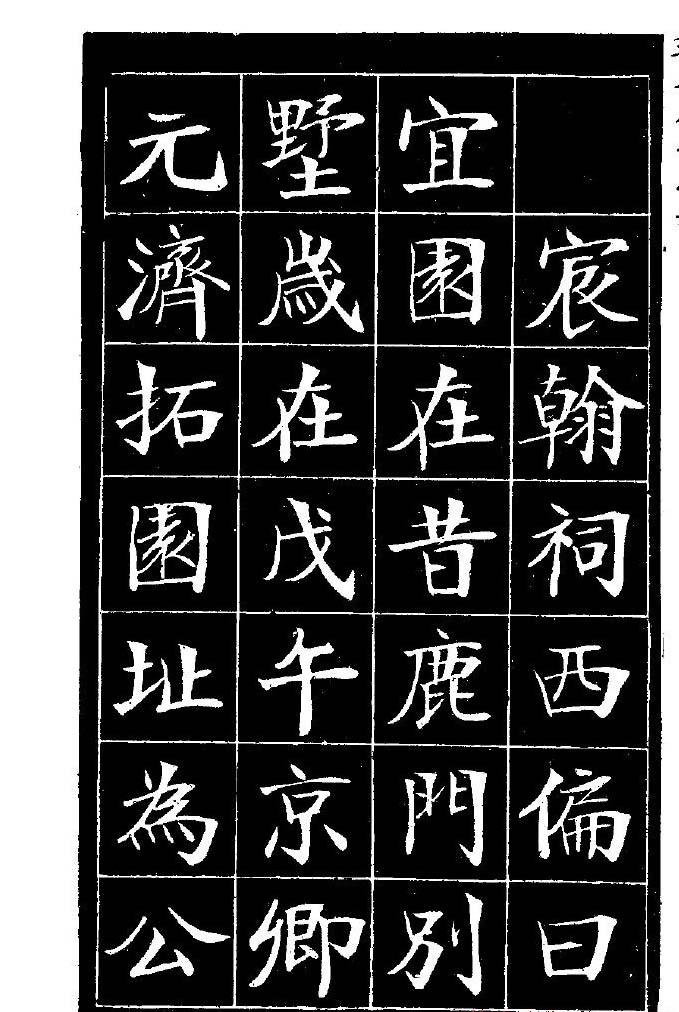 宸翰祠西偏曰
宜園在昔鹿門別
墅歲在戊午京卿
元濟拓園址為公